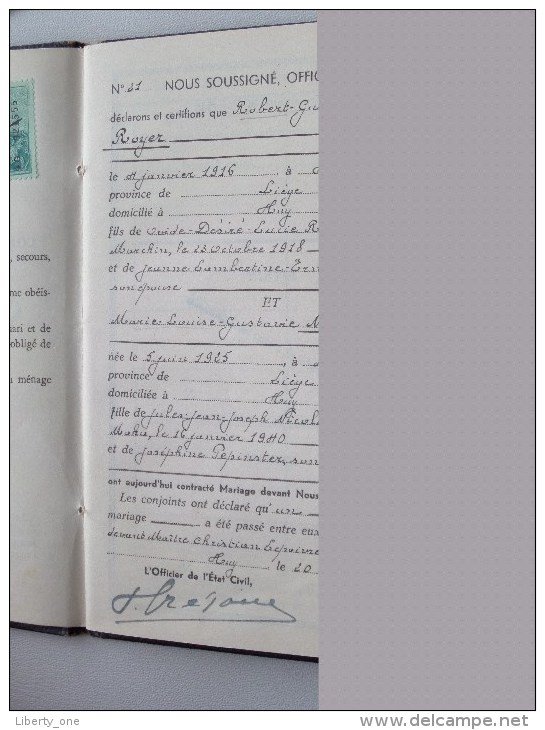 Liberty_one
N° 21 NOUS SOUSSIGNÉ, OFFIC
déclarons et certifions que Robert-Gu
Royer
le 21 janvier 1916, à
province de Liége
domicilié à Huy
fils de Ovide-Désiré-Lucie R
Marchin, le 13 octobre 1918
et de Jeanne Lambertine-Ern
son épouse
ET
Marie-Louise-Gustavie N
née le 5 juin 1925, à
province de Liége
domiciliée à Huy
fille de Jules-Jean-Joseph Nicol
le 16 janvier 1940
et de Joséphine Pepinster, son
ont aujourd'hui contracté Mariage devant Nous
Les conjoints ont déclaré qu'un
mariage a été passé entre eux
devant Maître Christian Lepoivre
Huy, le 20
L'Officier de l'État Civil,
secours,
me obéis-
ari et de
obligé de
ménage
Liberty_one
www.delcampe.net